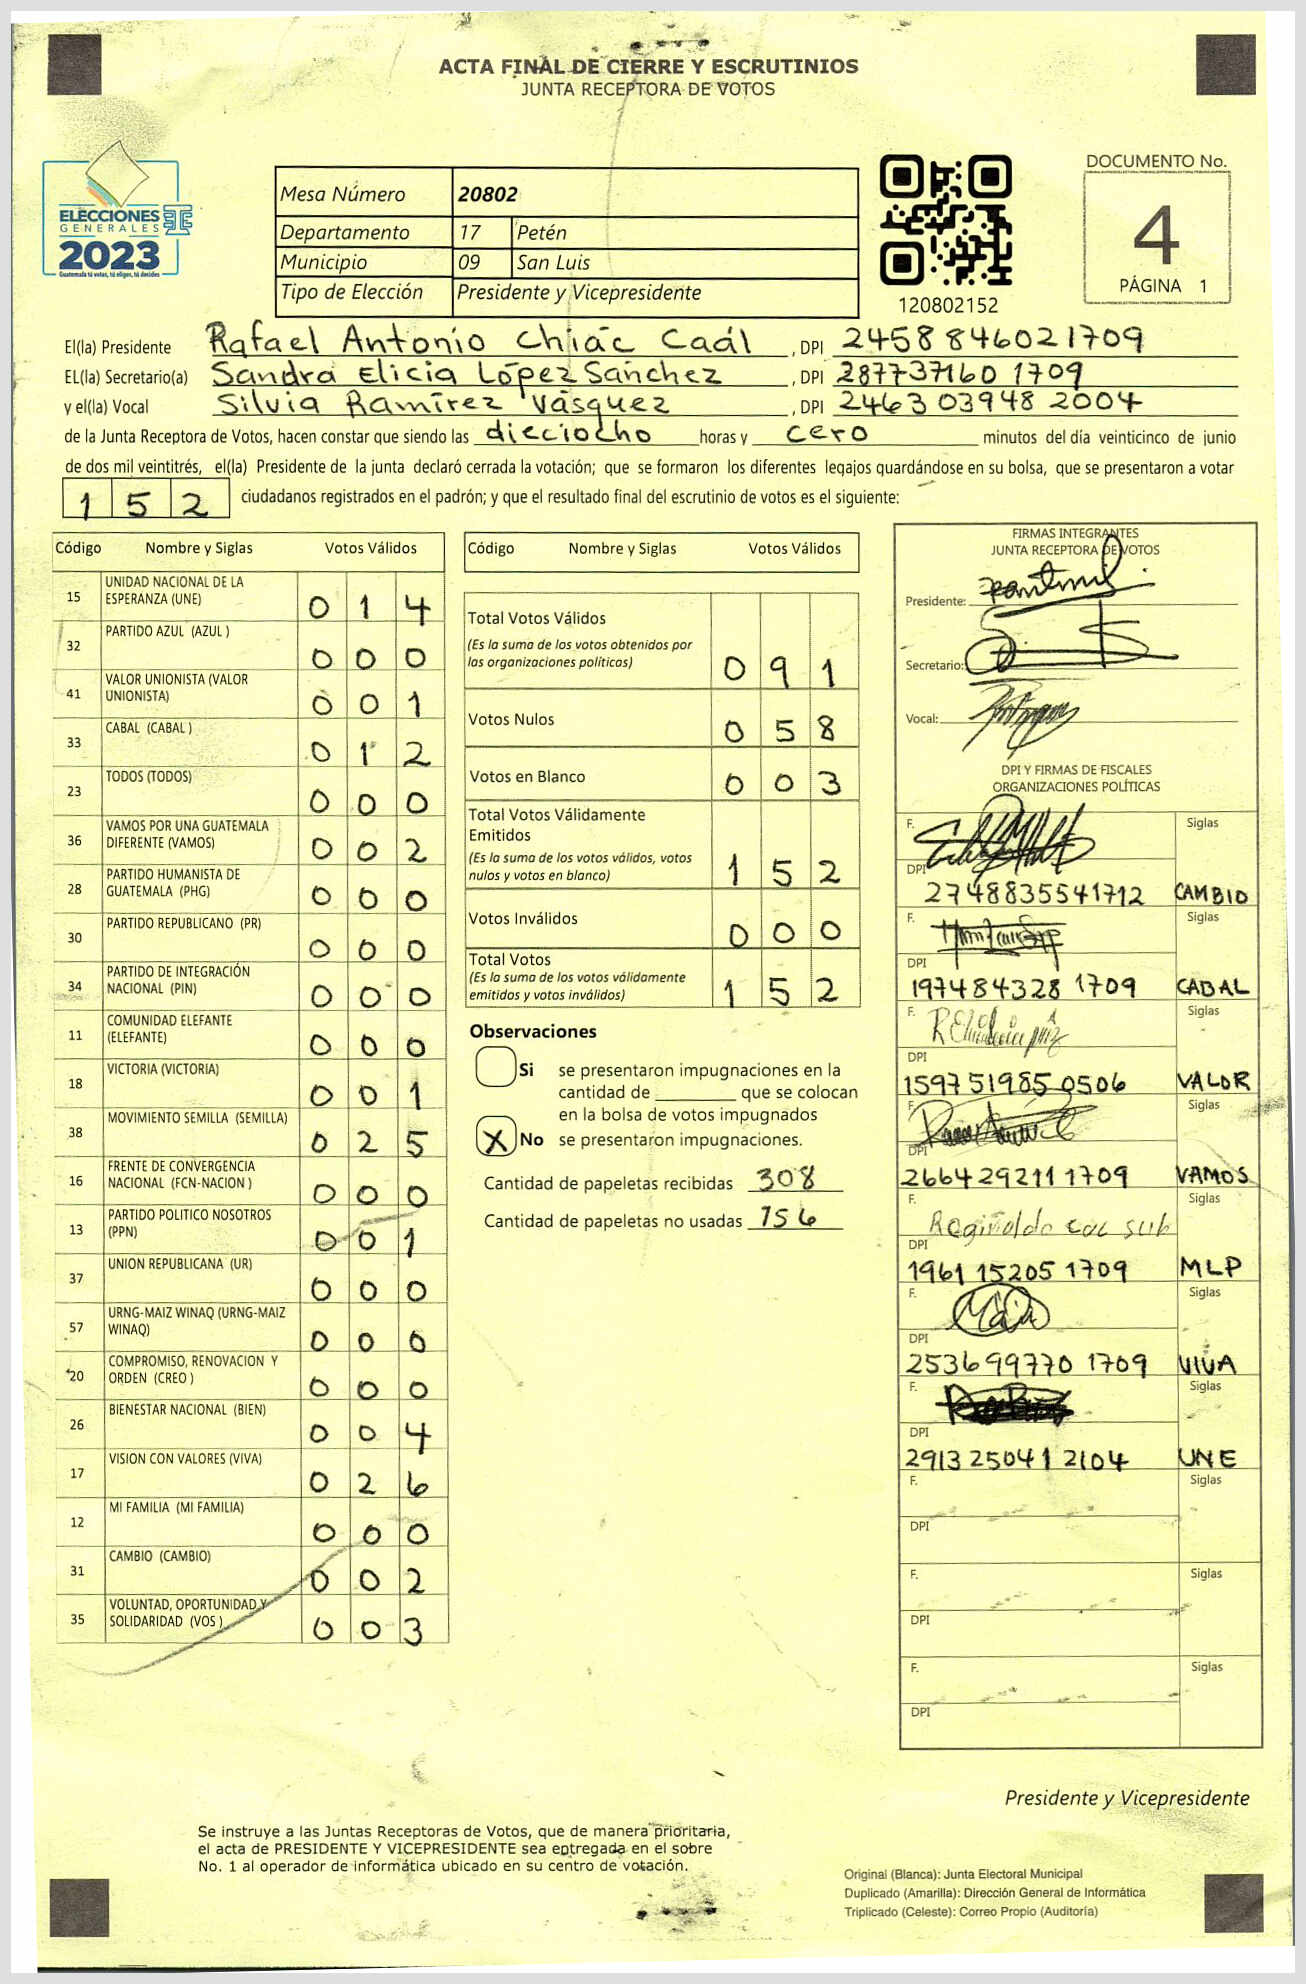 ACTA FINAL DE CIERRE Y ESCRUTINIOS
JUNTA RECEPTORA DE VOTOS
ELECCIONES
GENERALES
2023
Guatemala tú votas, tú eliges, tú decides
Mesa Número 20802
Departamento 17 Petén
Municipio 09 San Luis
Tipo de Elección Presidente y Vicepresidente
120802152
DOCUMENTO No.
4
PÁGINA 1
El(la) Presidente Rafael Antonio Chiác Caál , DPI 2458846021709
EL(la) Secretario(a) Sandra Elicia López Sánchez , DPI 287737160 1709
y el(la) Vocal Silvia Ramírez Vásquez , DPI 2463 03948 2004
de la Junta Receptora de Votos, hacen constar que siendo las dieciocho horas y cero minutos del día veinticinco de junio
de dos mil veintitrés, el(la) Presidente de la junta declaró cerrada la votación; que se formaron los diferentes legajos guardándose en su bolsa, que se presentaron a votar
152 ciudadanos registrados en el padrón; y que el resultado final del escrutinio de votos es el siguiente:
Código Nombre y Siglas Votos Válidos
15 UNIDAD NACIONAL DE LA
ESPERANZA (UNE) 0 1 4
32 PARTIDO AZUL (AZUL ) 0 0 0
41 VALOR UNIONISTA (VALOR
UNIONISTA) 0 0 1
33 CABAL (CABAL ) 0 1 2
23 TODOS (TODOS) 0 0 0
36 VAMOS POR UNA GUATEMALA
DIFERENTE (VAMOS) 0 0 2
28 PARTIDO HUMANISTA DE
GUATEMALA (PHG) 0 0 0
30 PARTIDO REPUBLICANO (PR) 0 0 0
34 PARTIDO DE INTEGRACIÓN
NACIONAL (PIN) 0 0 0
11 COMUNIDAD ELEFANTE
(ELEFANTE) 0 0 0
18 VICTORIA (VICTORIA) 0 0 1
38 MOVIMIENTO SEMILLA (SEMILLA) 0 2 5
16 FRENTE DE CONVERGENCIA
NACIONAL (FCN-NACION ) 0 0 0
13 PARTIDO POLITICO NOSOTROS
(PPN) 0 0 1
37 UNION REPUBLICANA (UR) 0 0 0
57 URNG-MAIZ WINAQ (URNG-MAIZ
WINAQ) 0 0 0
20 COMPROMISO, RENOVACION Y
ORDEN (CREO ) 0 0 0
26 BIENESTAR NACIONAL (BIEN) 0 0 4
17 VISION CON VALORES (VIVA) 0 2 6
12 MI FAMILIA (MI FAMILIA) 0 0 0
31 CAMBIO (CAMBIO) 0 0 2
35 VOLUNTAD, OPORTUNIDAD Y
SOLIDARIDAD (VOS ) 0 0 3
Código Nombre y Siglas Votos Válidos
Total Votos Válidos
(Es la suma de los votos obtenidos por
las organizaciones políticas) 0 9 1
Votos Nulos 0 5 8
Votos en Blanco 0 0 3
Total Votos Válidamente
Emitidos
(Es la suma de los votos válidos, votos
nulos y votos en blanco) 1 5 2
Votos Inválidos 0 0 0
Total Votos
(Es la suma de los votos válidamente
emitidos y votos inválidos) 1 5 2
Observaciones
Si se presentaron impugnaciones en la
cantidad de ________ que se colocan
en la bolsa de votos impugnados
X No se presentaron impugnaciones.
Cantidad de papeletas recibidas 308
Cantidad de papeletas no usadas 156
FIRMAS INTEGRANTES
JUNTA RECEPTORA DE VOTOS
Presidente:
Secretario:
Vocal:
DPI Y FIRMAS DE FISCALES
ORGANIZACIONES POLÍTICAS
F. Siglas
DPI
2748835541712 CAMBIO
F. Siglas
DPI
197484328 1709 CABAL
F. Siglas
DPI
1597519850506 VALOR
F. Siglas
DPI
2664292111709 VAMOS
F. Siglas
Reginaldo coc sub
DPI
1961 15205 1709 MLP
F. Siglas
DPI
253699770 1709 VIVA
F. Siglas
DPI
2913 25041 2104 UNE
F. Siglas
DPI
F. Siglas
DPI
F. Siglas
DPI
Presidente y Vicepresidente
Se instruye a las Juntas Receptoras de Votos, que de manera prioritaria,
el acta de PRESIDENTE Y VICEPRESIDENTE sea entregada en el sobre
No. 1 al operador de informática ubicado en su centro de votación.
Original (Blanca): Junta Electoral Municipal
Duplicado (Amarilla): Dirección General de Informática
Triplicado (Celeste): Correo Propio (Auditoría)